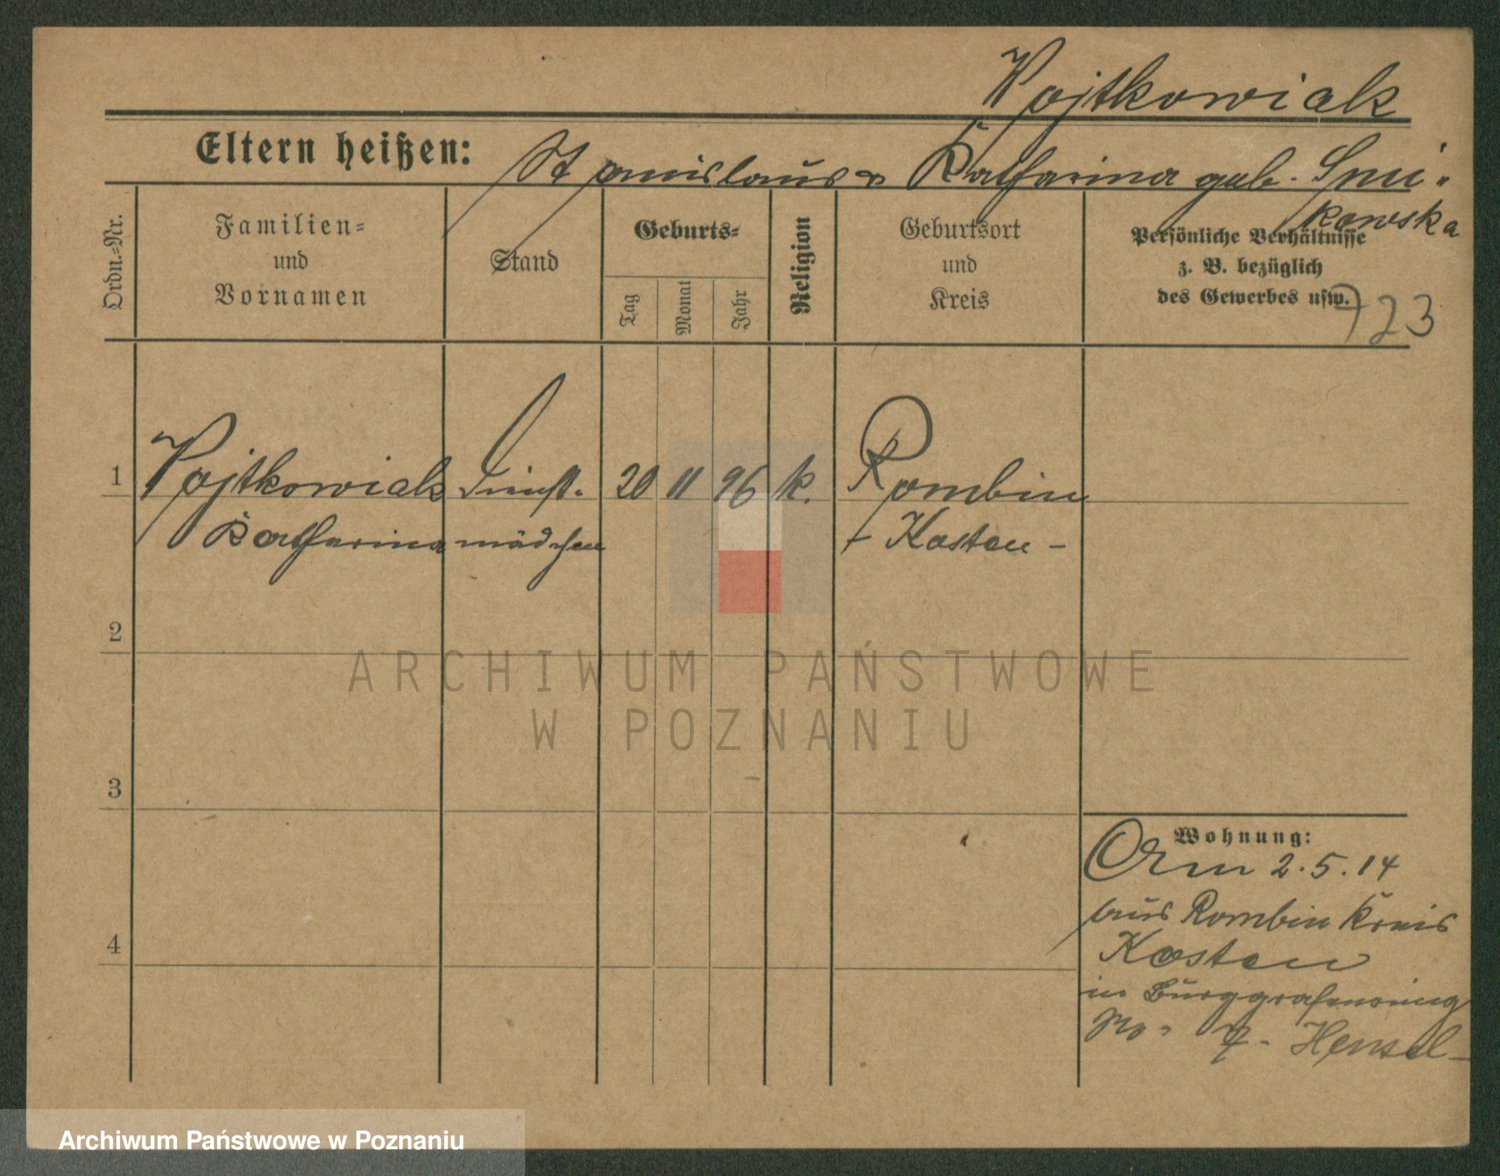 Wojtkowiak
Eltern heißen: Stanislaus & Katharina geb. Smi-
kowska
Ordn.-Nr.
Familien-
und
Vornamen
Stand
Geburts-
Tag
Monat
Jahr
Religion
Geburtsort
und
Kreis
Persönliche Verhältnisse
z. B. bezüglich
des Gewerbes usw.
723
1 Wojtkowiak Dienst- 20 11 96 k. Rombin
Katharina mädchen - Kosten -
2
3
4
Wohnung:
Am 2.5.14
aus Rombin Kreis
Kosten
in Burggrafenring
No. 7. Hensel
ARCHIWUM PAŃSTWOWE
W POZNANIU
Archiwum Państwowe w Poznaniu